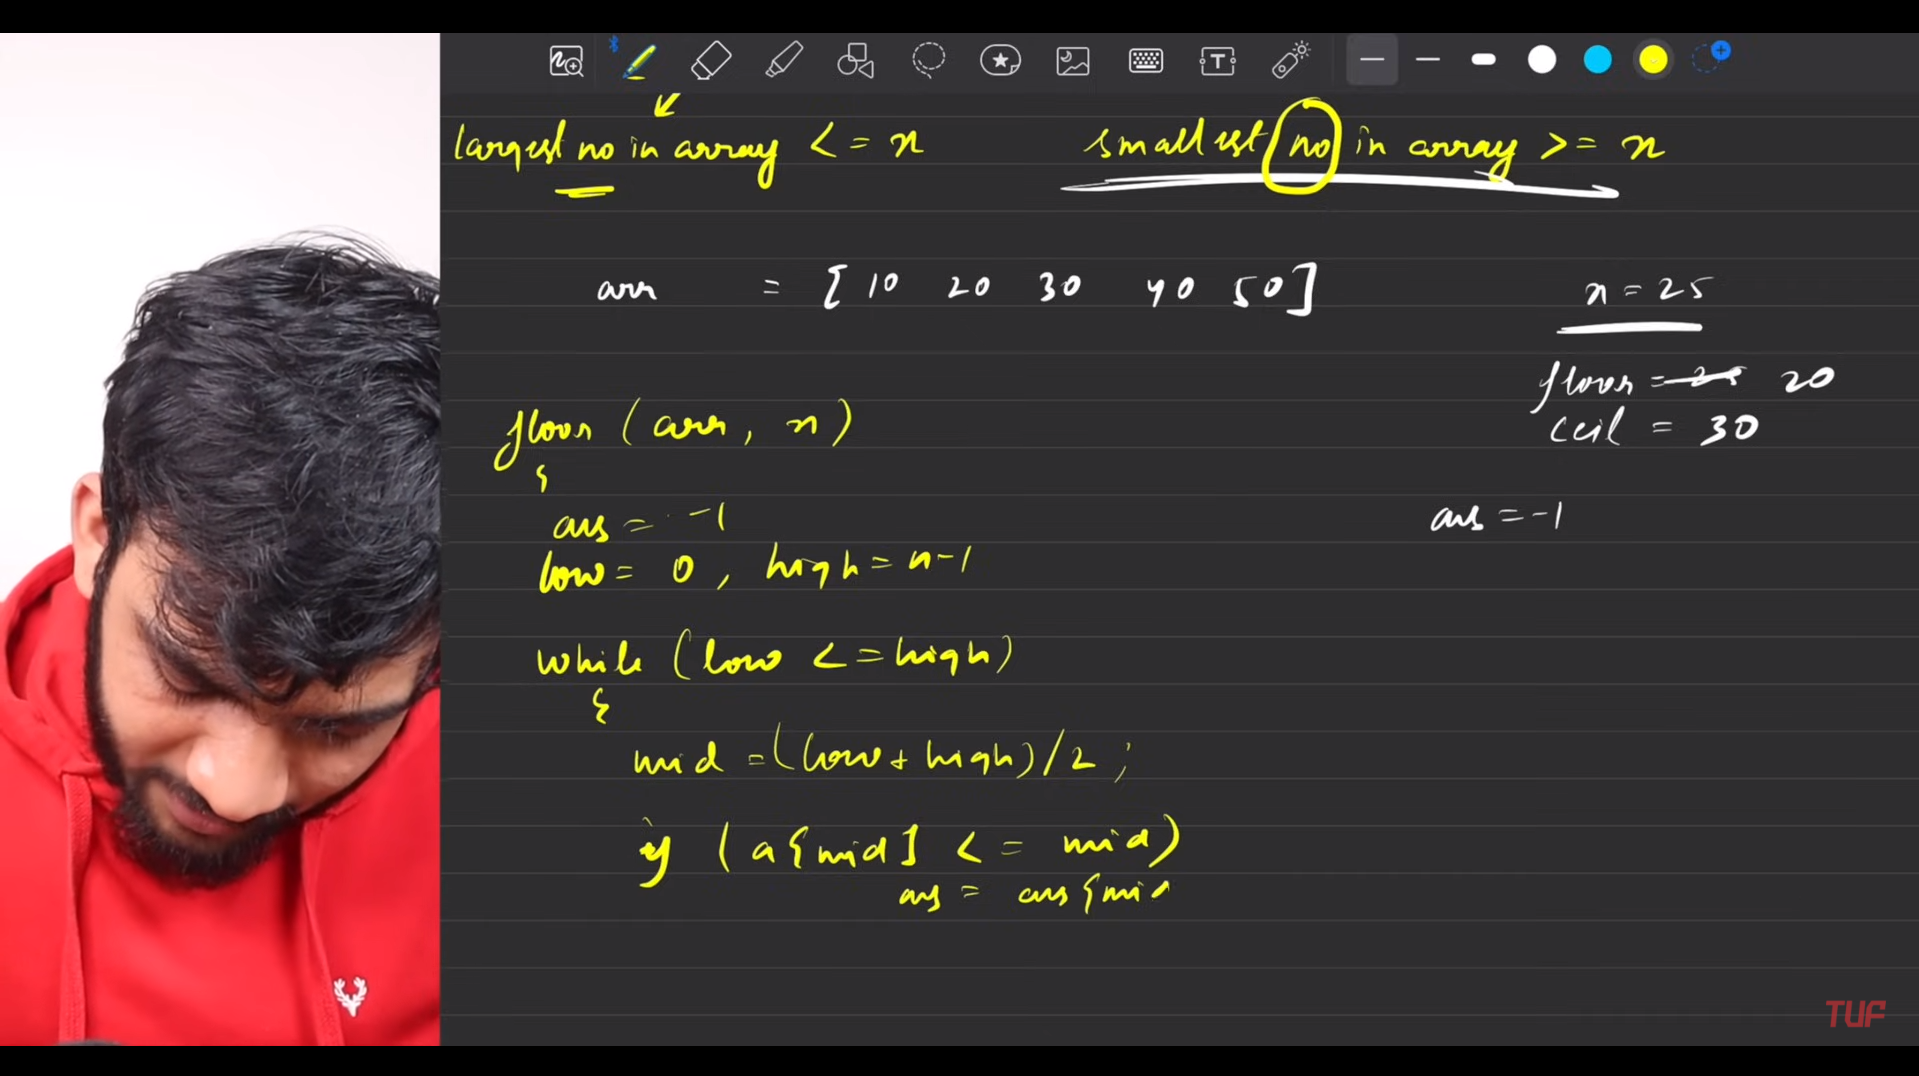 largest no in array <= x
smallest no in array >= x
arr = [ 10 20 30 40 50 ]
x = 25
floor = 25 20
ceil = 30
floor (arr, x)
{
ans = -1
ans = -1
low = 0 , high = n-1
while (low <= high)
{
mid = (low + high) / 2 ;
if ( a[mid] <= mid)
ans = arr[mid
TUF